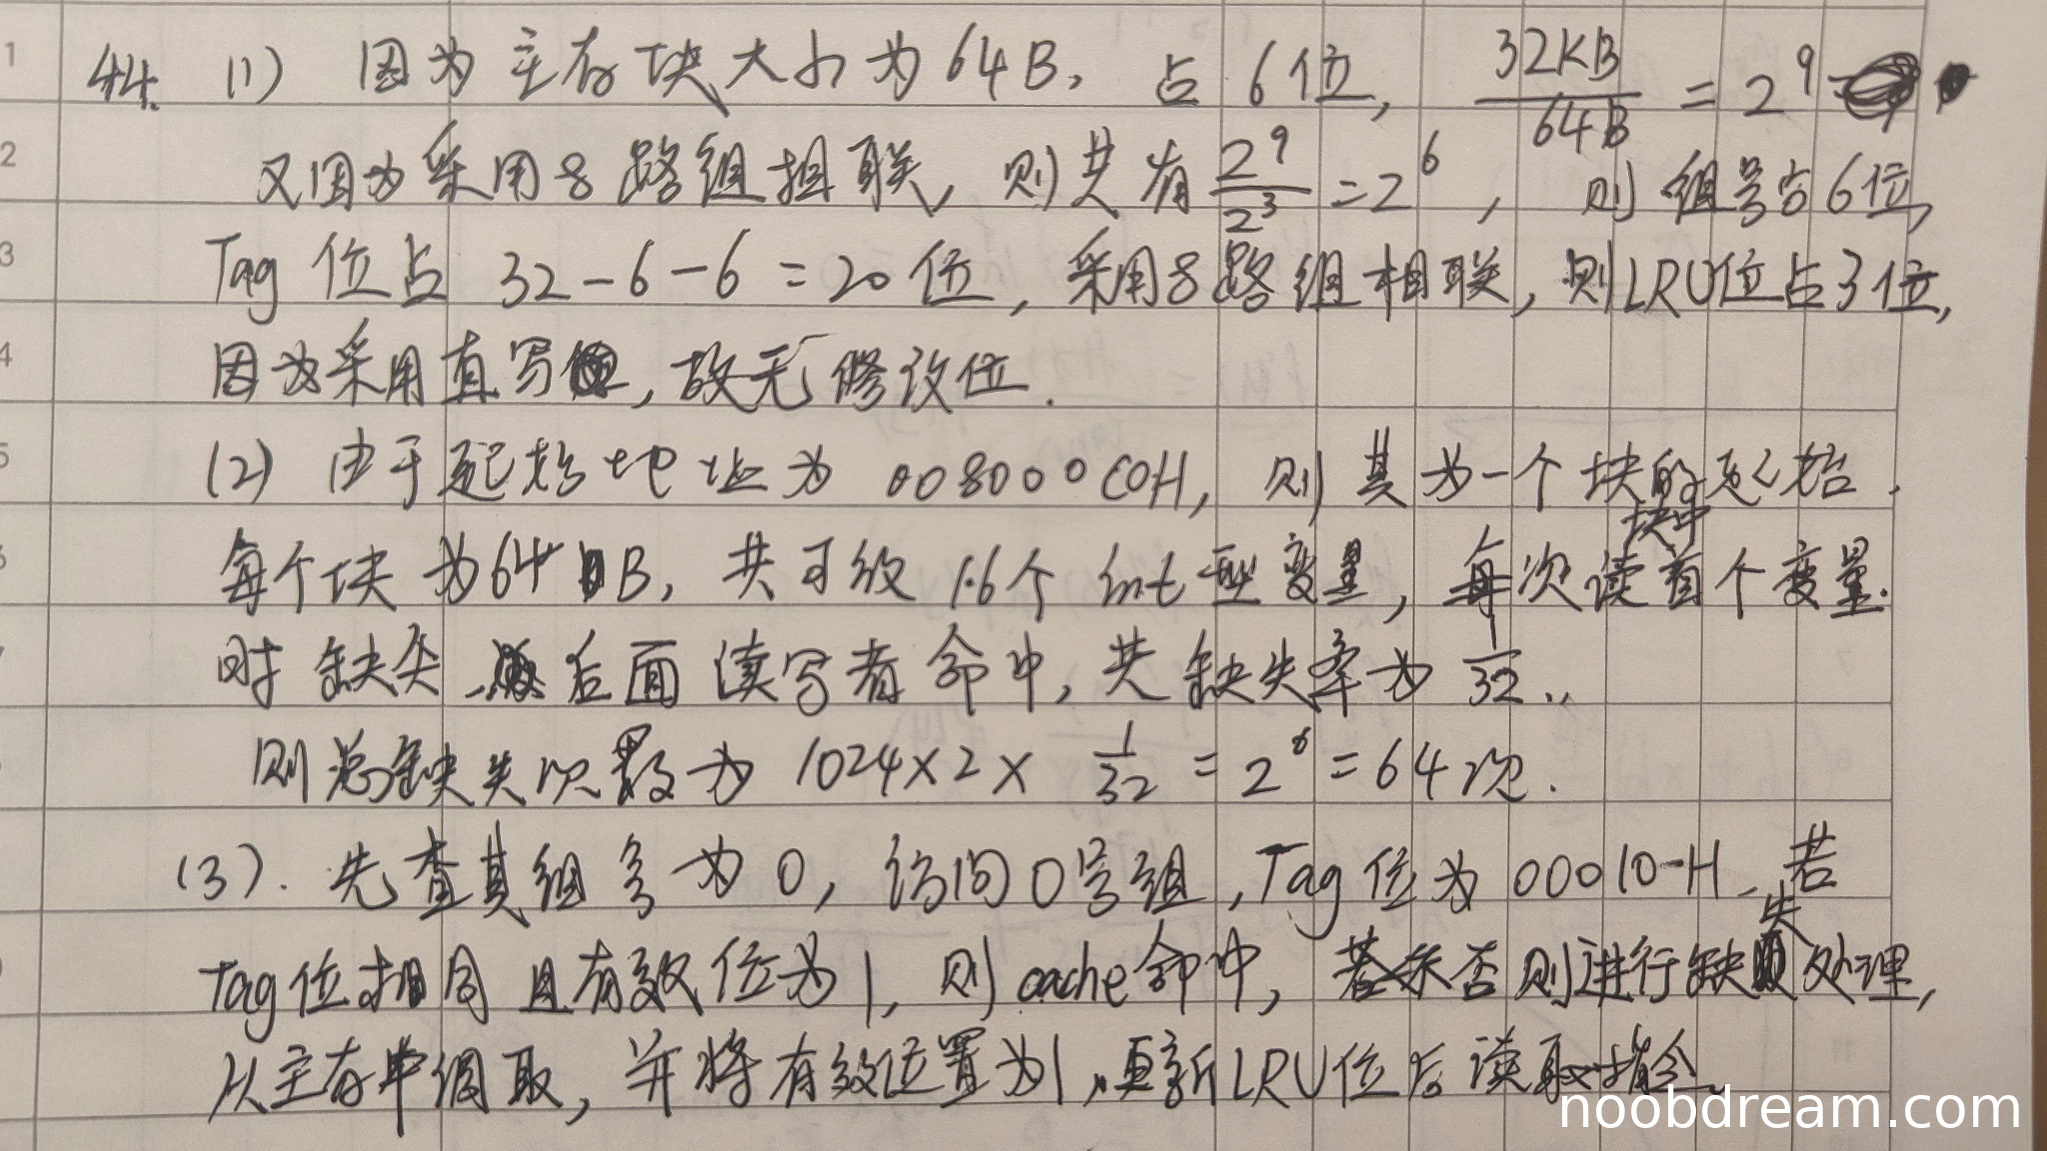 44. (1) 因为主存块大小为64B, 占6位, 32KB/64B = 2^9
又因为采用8路组相联, 则共有 2^9/2^3 = 2^6, 则组号占6位,
Tag位占 32-6-6=20位, 采用8路组相联, 则LRU位占3位,
因为采用直写, 故无修改位.
(2) 由于起始地址为 008000C0H, 则其为一个块的起始.
每个块为64B, 共可放16个int型变量, 每次读块中首个变量.
时缺失, 后面读写者命中, 共缺失率为 1/32.
则总缺失次数为 1024×2×1/32 = 2^6 = 64次.
(3). 先查其组号为0, 访问0号组, Tag位为 00010-H, 若
Tag位相同且有效位为1, 则cache命中, 否则进行缺失处理,
从主存中调取, 并将有效位置为1, 更新LRU位后读取指令.
noobdream.com